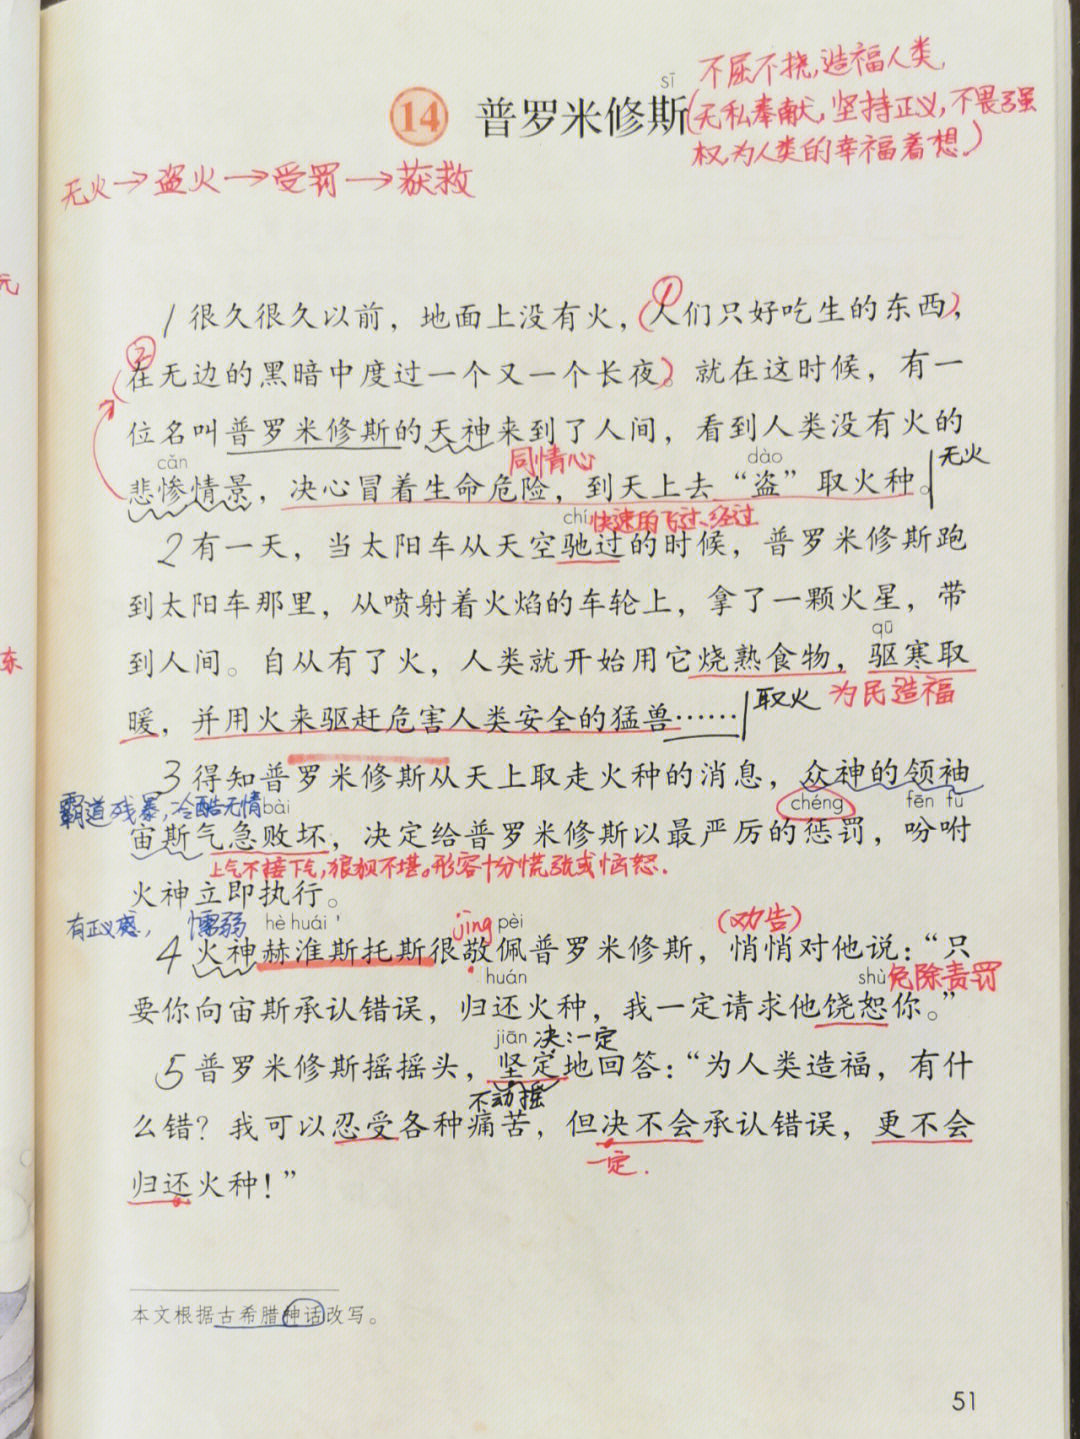 不屈不挠,造福人类,
sī
14 普罗米修斯(无私奉献,坚持正义,不畏强
权,为人类的幸福着想。)
无火→盗火→受罚→获救
元
①
1 很久很久以前，地面上没有火，(人们只好吃生的东西)，
②
(在无边的黑暗中度过一个又一个长夜)。就在这时候，有一
位名叫普罗米修斯的天神来到了人间，看到人类没有火的
cǎn 同情心 dào 无火
悲惨情景，决心冒着生命危险，到天上去“盗”取火种。
chí 快速的飞过、经过
2 有一天，当太阳车从天空驰过的时候，普罗米修斯跑
到太阳车那里，从喷射着火焰的车轮上，拿了一颗火星，带
qū
东
到人间。自从有了火，人类就开始用它烧熟食物，驱寒取
取火 为民造福
暖，并用火来驱赶危害人类安全的猛兽……
3 得知普罗米修斯从天上取走火种的消息，众神的领袖
霸道残暴,冷酷无情 bài chéng fēn fù
宙斯气急败坏，决定给普罗米修斯以最严厉的惩罚，吩咐
上气不接下气,狼狈不堪。形容十分慌张或恼怒.
火神立即执行。
有正义感, 懦弱 hè huái jìng pèi (劝告)
4 火神赫淮斯托斯很敬佩普罗米修斯，悄悄对他说：“只
huán shù 免除责罚
要你向宙斯承认错误，归还火种，我一定请求他饶恕你。”
jiān 决:一定
5 普罗米修斯摇摇头，坚定地回答：“为人类造福，有什
不动摇
么错？我可以忍受各种痛苦，但决不会承认错误，更不会
一定.
归还火种！”
本文根据古希腊神话改写。
51